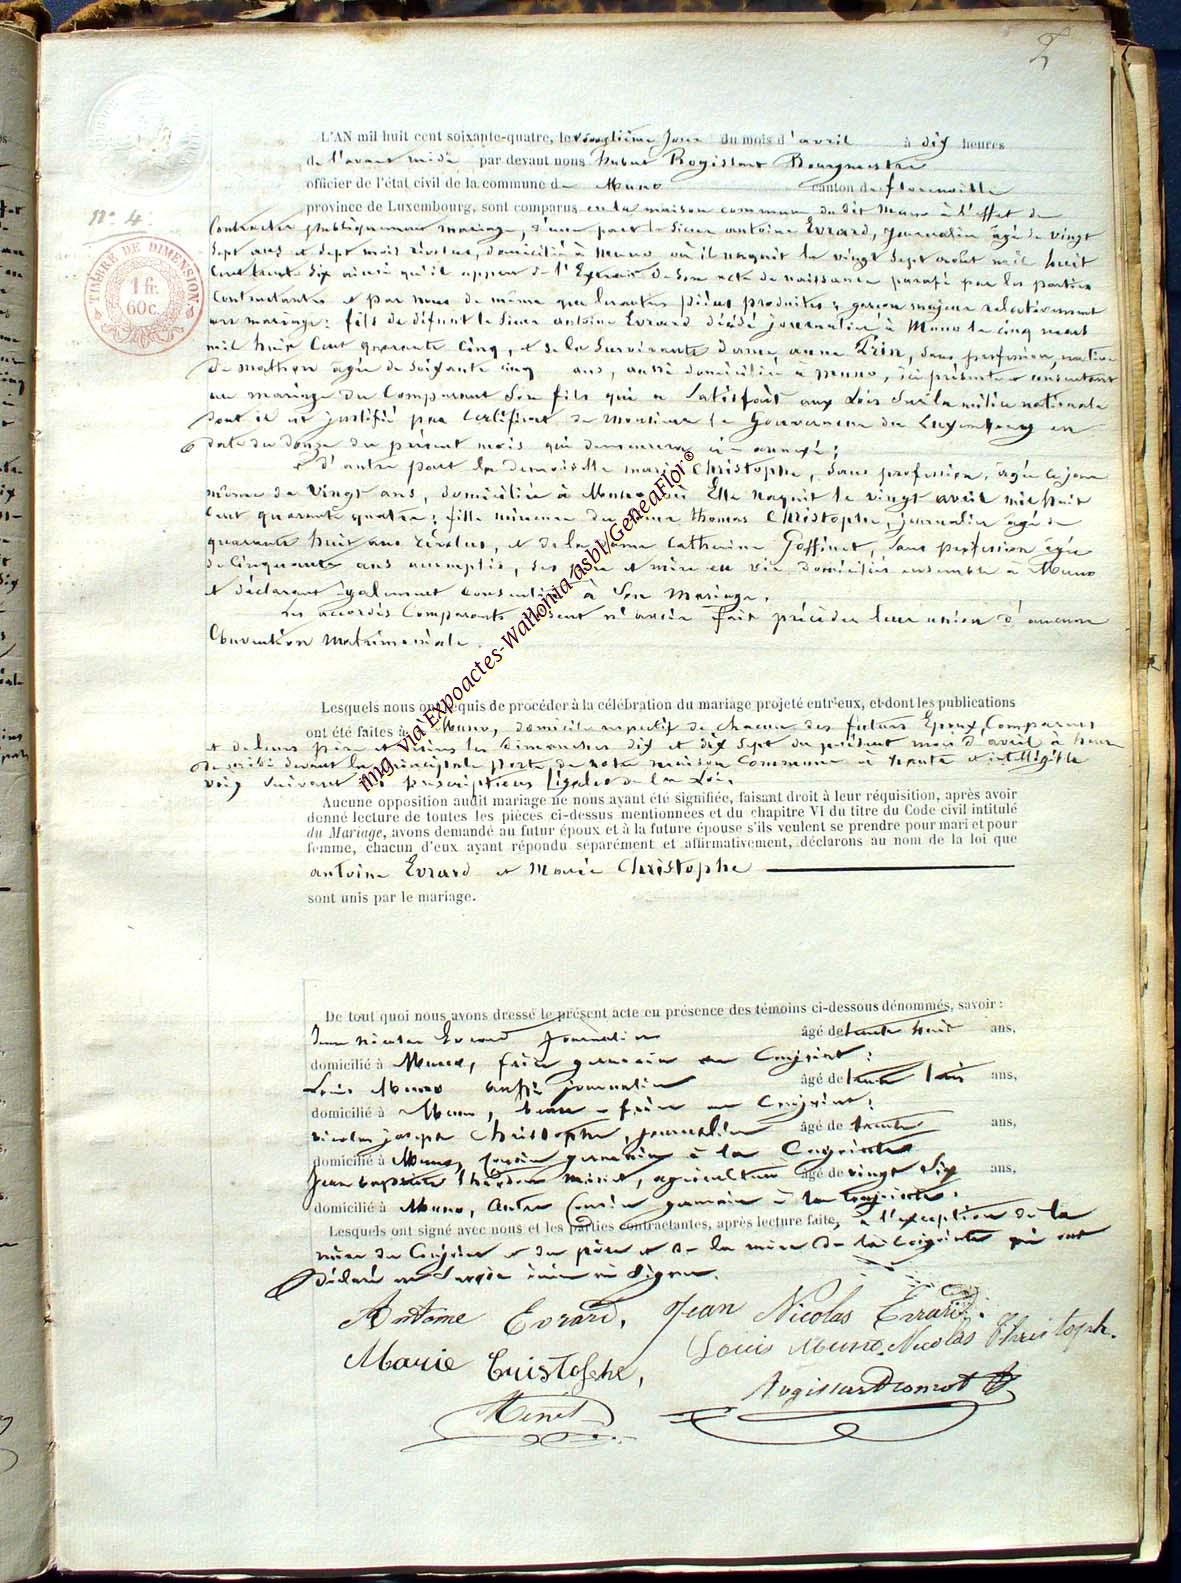 2
L'AN mil huit cent soixante-quatre, le vingtième jour du mois d'avril à dix heures
de l'avant midi par devant nous hubert Rogissart Bourgmestre
officier de l'état civil de la commune de Muno canton de florenville
province de Luxembourg, sont comparus en la maison commune du dit Muno à l'effet de
N° 4
TIMBRE DE DIMENSION
1 fr.
60 c.
Contracter publiquement mariage, d'une part le Sieur antoine Evrard, journalier âgé de vingt
Sept ans et Sept mois révolus, domicilié à Muno où il naquit le vingt Sept août mil huit
Cent trente Six ainsi qu'il appert de l'Extrait de Son acte de naissance parafé par les parties
Contractantes et par nous de même que les autres pièces produites; garçon majeur relativement
au mariage; fils de défunt le Sieur antoine Evrard décédé journalier à Muno le cinq mars
mil huit Cent quarante cinq, et de la Survivante dame anne Prin, Sans profession, native
de mathon âgée de Soixante cinq ans, aussi domiciliée à Muno, ici présente et consentant
au mariage du Comparant Son fils qui a Satisfait aux Lois Sur la milice nationale
dont il est justifié par Certificat de Monsieur le Gouverneur du Luxembourg en
date du douze du présent mois qui demeurera ci-annexé;
et d'autre part la demoiselle marie Christophe, Sans profession, âgée ce jour
même de vingt ans, domiciliée à Muno où Elle naquit le vingt avril mil huit
Cent quarante quatre; fille mineure du Sieur thomas Christophe, journalier âgé de
quarante huit ans révolus, et de la dame Catherine Goffinet, Sans profession âgée
de Cinquante ans accomplis, Ses père et mère en vie, domiciliés ensemble à Muno
et déclarant également Consentir à Son Mariage.
Les accordés Comparants disent n'avoir fait précéder leur union d'aucune
Convention matrimoniale.
img via Expoactes-Wallonia asbl/GeneaFlor ©
Lesquels nous ont requis de procéder à la célébration du mariage projeté entr'eux, et dont les publications
ont été faites à Muno, domicile respectif de chacun des futurs Epoux Comparants
et de leurs père et mères les dimanches dix et dix Sept du présent mois d'avril à heure
de midi devant la principale porte de notre maison Commune à haute et intelligible
voix suivant les prescriptions légales de la Loi.
Aucune opposition audit mariage ne nous ayant été signifiée, faisant droit à leur réquisition, après avoir
donné lecture de toutes les pièces ci-dessus mentionnées et du chapitre VI du titre du Code civil intitulé
du Mariage, avons demandé au futur époux et à la future épouse s'ils veulent se prendre pour mari et pour
femme, chacun d'eux ayant répondu séparément et affirmativement, déclarons au nom de la loi que
antoine Evrard et Marie Christophe
sont unis par le mariage.
De tout quoi nous avons dressé le présent acte en présence des témoins ci-dessous dénommés, savoir :
Jean Nicolas Evrard Journalier âgé de trente huit ans,
domicilié à Muno, frère germain au Conjoint;
Louis Muno aussi journalier âgé de trente trois ans,
domicilié à Muno, beau-frère au Conjoint;
Nicolas joseph Christophe, journalier âgé de trente ans,
domicilié à Muno, Cousin germain à la Conjointe
Jean baptiste théodore Minet, agriculteur âgé de vingt Six ans,
domicilié à Muno, Autre Cousin germain à la Conjointe.
Lesquels ont signé avec nous et les parties contractantes, après lecture faite, à l'exception de la
mère du Conjoint et du père et de la mère de la Conjointe qui ont
déclaré ne Savoir écrire ni Signer.
Antoine Evrard, Jean Nicolas Evrard.
Louis Muno. Nicolas Christoph.
Marie Cristofehe,
Minet